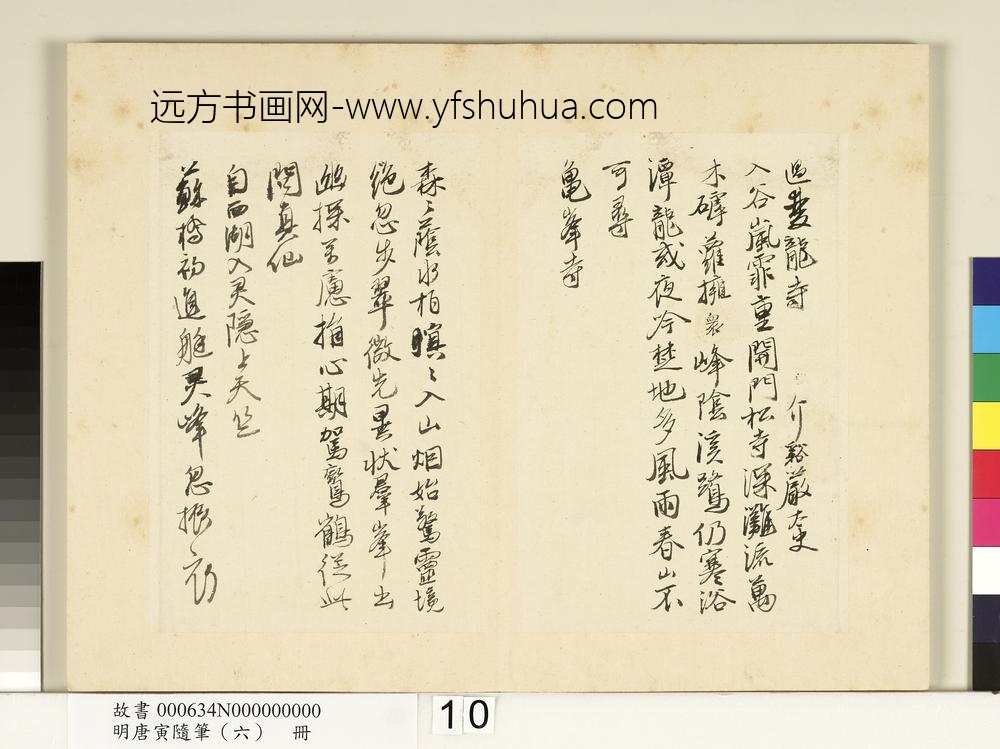 远方书画网-www.yfshuhua.com
過雙龍寺 介谿嚴太史
入谷嵐霏重開門松寺深灘流萬
木磴蘿擁衆峰陰溪鷺仍寒浴
潭龍或夜吟楚地多風雨春山不
可尋
龜峯寺
森〻蔭水柏暝〻入山烟始驚靈境
絶忽步翠微先異状羣峯出
幽探百慮捐心期駕鸞鶴從此
問真仙
自西湖入灵隱上天竺
蘇橋初進艇灵峰忽振衣
故書 000634N000000000
明唐寅隨筆(六) 冊
10